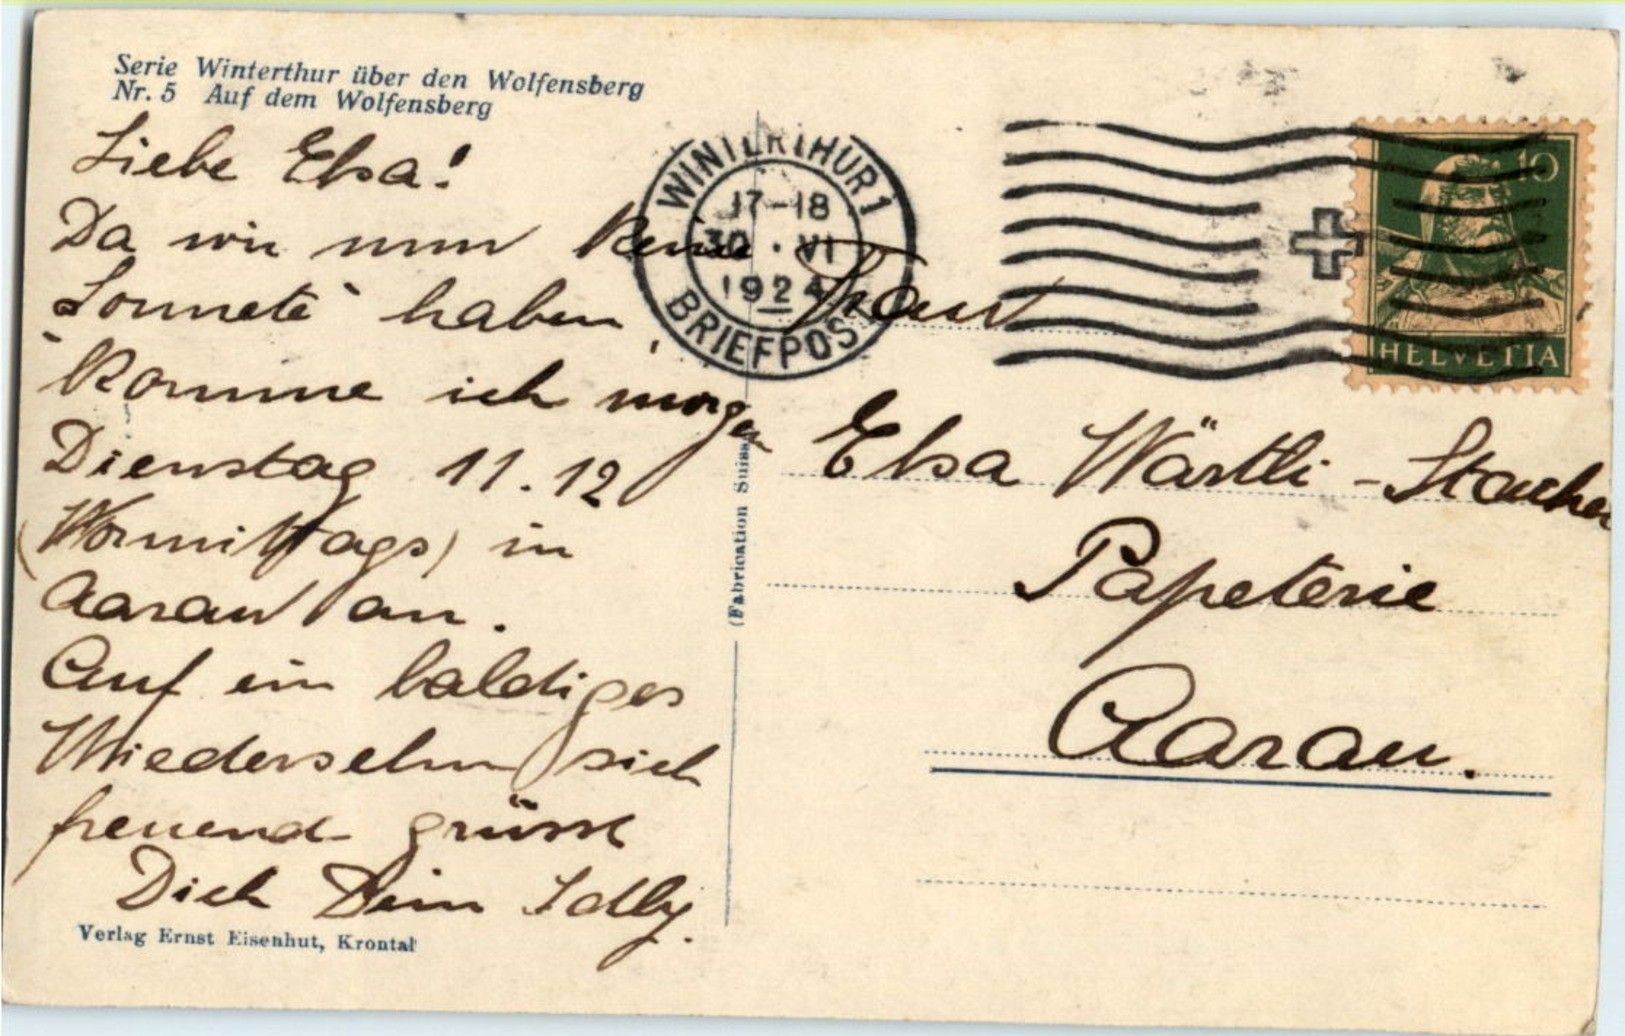 Serie Winterthur über den Wolfensberg
Nr. 5 Auf dem Wolfensberg
Liebe Elsa!
Da wir nun keine
haben,
komme ich morgen
Dienstag 11.12
(Vormittags) in
Aarau an.
Auf ein baldiges
Wiedersehn sich
freuend grüsst
Dich Dein
Verlag Ernst Eisenhut, Krontal
(Fabrication Suisse
WINTERTHUR 1
17-18
30.VI
1924
BRIEFPOST
10
HELVETIA
Frau
Elsa Wärtli-
Papeterie
Aarau.